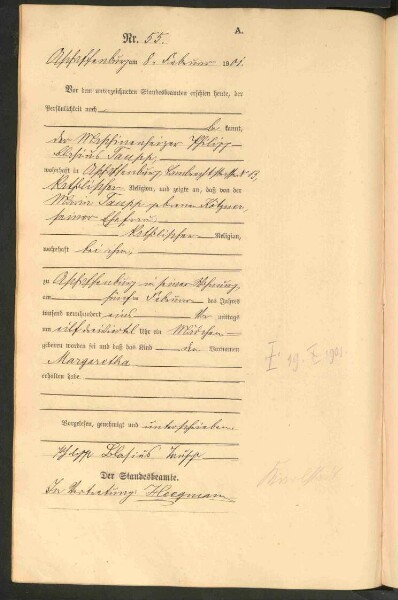 A.
Nr. 55.
Aschaffenburg am 8. Februar 1901.
Vor dem unterzeichneten Standesbeamten erschien heute, der
Persönlichkeit nach
be kannt,
der Maschinenheizer Philipp
Blasius
wohnhaft in Aschaffenburg
katholischer Religion, und zeigte an, daß von der
Maria geborene
seiner Ehefrau
katholischer Religion,
wohnhaft bei ihm,
zu Aschaffenburg in seiner Wohnung,
am fünften Februar des Jahres
tausend neunhundert eins Vor mittags
um elf dreiviertel Uhr ein Mädchen
geboren worden sei und daß das Kind den Vornamen
Margaretha
erhalten habe
Vorgelesen, genehmigt und unterschrieben
Philipp Blasius
Der Standesbeamte.
In Vertretung Hoegmann
1901.